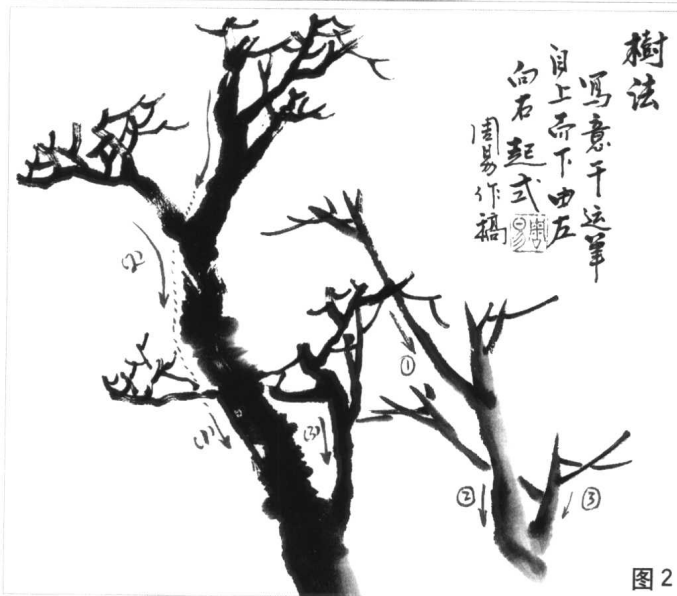 樹法
写意干运笔
自上而下由左
向右起式
周易作稿
周易
(2)
(1)
(3)
①
②
③
图2